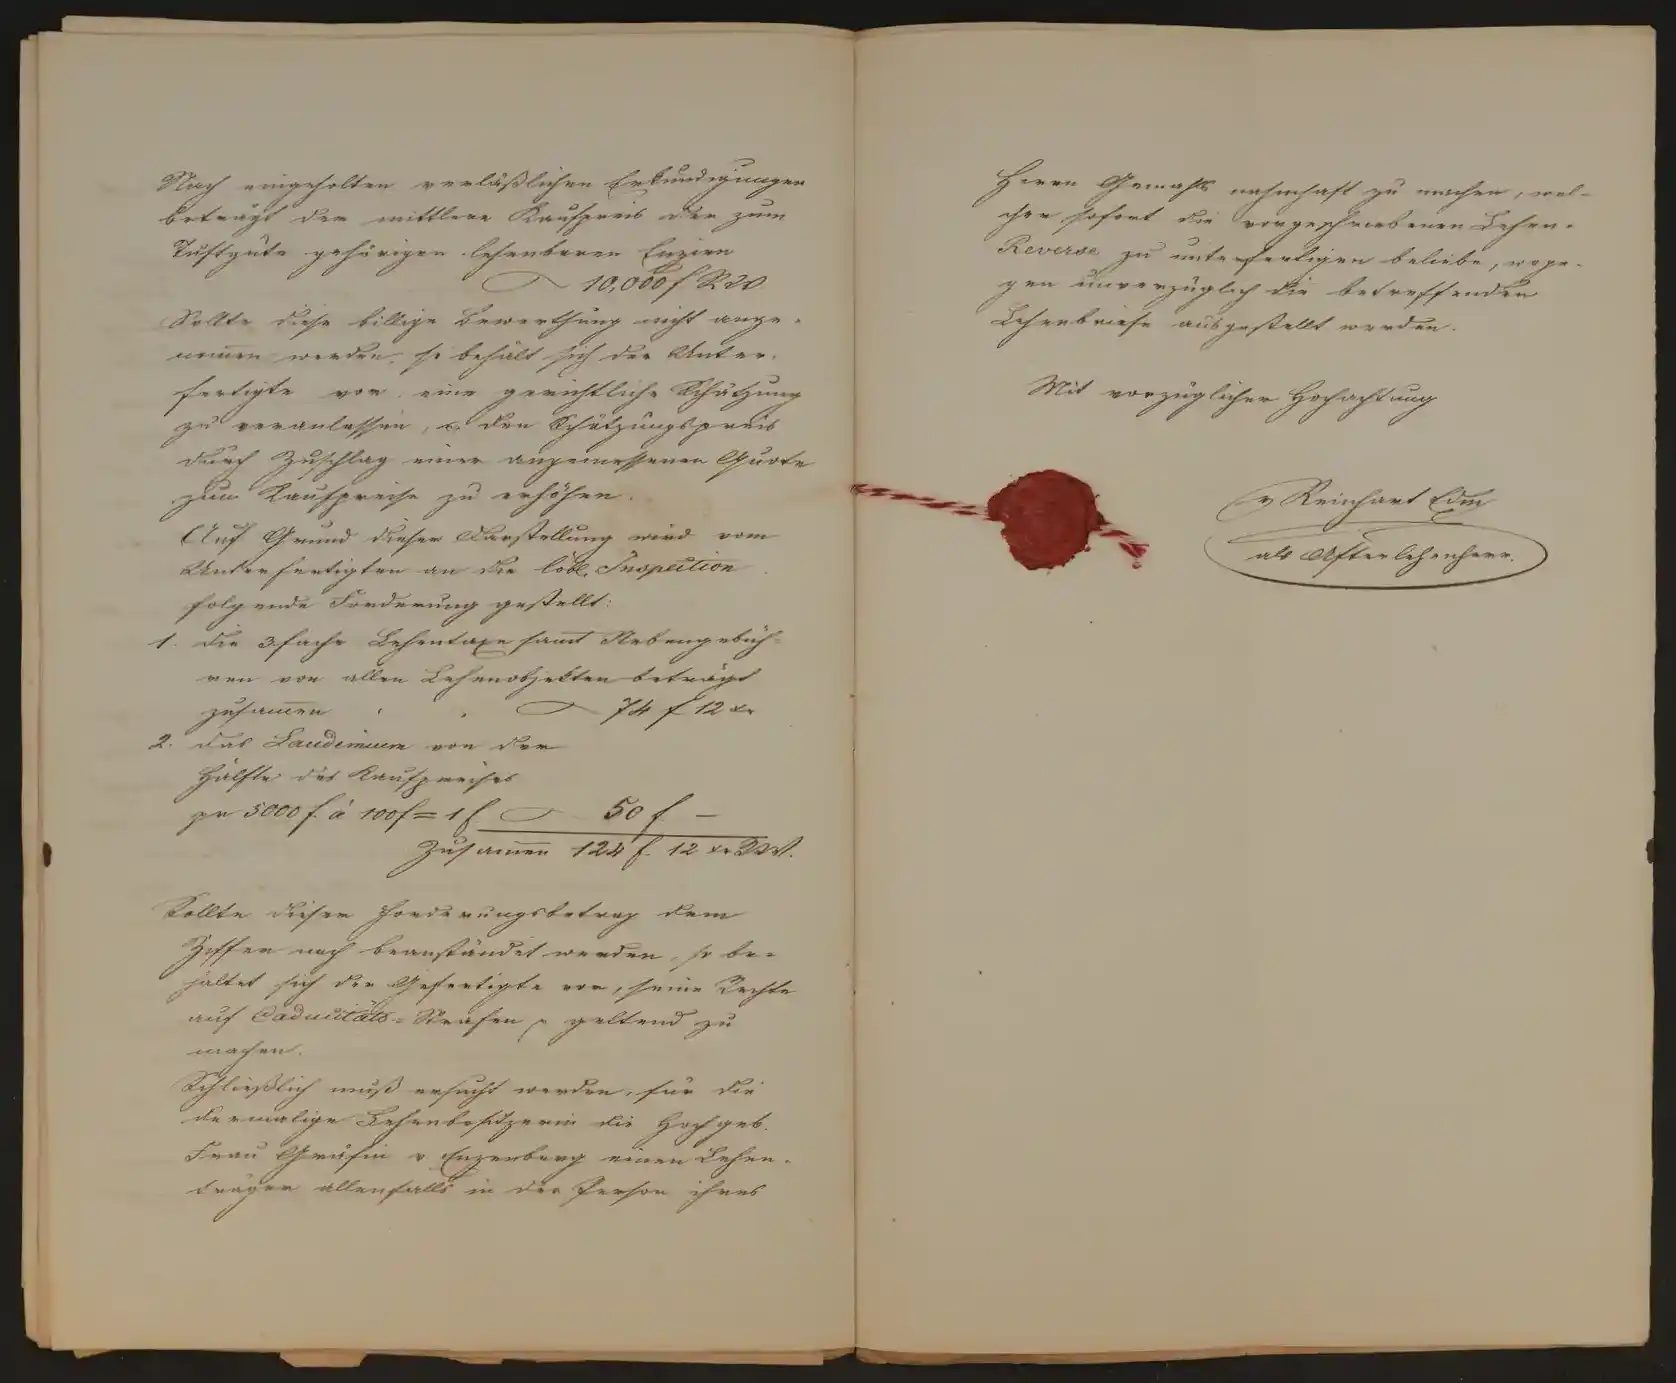 Nach eingeholten verläßlichen Erkundigungen
beträgt der mittlere Kaufpreis der zum
Tuftgute gehörigen lehenbaren Enzian
10,000 f RW
Sollte diese billige Bewerthung nicht ange-
nommen werden, so behält sich der Unter-
fertigte vor, eine gerichtliche Schätzung
zu veranlassen, u. den Schätzungspreis
durch Zuschlag einer angemessenen Quote
zum Kaufpreise zu erhöhen.
Auf Grund dieser Darstellung wird vom
Unterfertigten an die löbl. Inspection
folgende Forderung gestellt:
1. die 3fache Lehentaxe samt Nebengebüh-
ren von allen Lehenobjekten beträgt
zusammen 74 f 12 xr
2. das Laudemium von der
Hälfte des Kaufpreises
pr 5000 f. à 100 f = 1 f 50 f. —
Zusammen 124 f. 12 xr RW.
Sollte dieser Forderungsbetrag dem
Ziffer nach beanständet werden, so be-
haltet sich der Gefertigte vor, seine Rechte
auf Caducitäts-Strafen geltend zu
machen.
Schließlich muß ersucht werden, für die
dermalige Lehenbesitzerin die Hochgeb.
Frau Gräfin v Enzenberg einen Lehen-
träger allenfalls in der Person ihres
Herrn Gemahls nahmhaft zu machen, wel-
cher sofort die vorgeschriebenen Lehen-
Reverse zu unterfertigen beliebe, woge-
gen unverzüglich die betreffenden
Lehenbriefe ausgestellt werden.
Mit vorzüglicher Hochachtung
v Reinhart Edm
als Afterlehenherr.